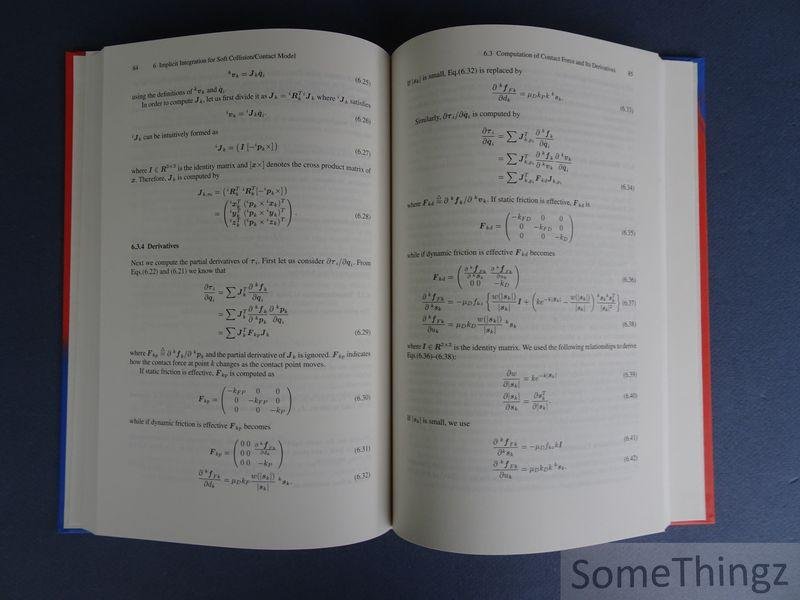 84 6 Implicit Integration for Soft Collision/Contact Model
ᵏvₖ = Jₖq̇ᵢ (6.25)
using the definitions of ᵏvₖ and q̇ᵢ.
In order to compute Jₖ, let us first divide it as Jₖ = ⁱRₖᵀ ⁱJₖ where ⁱJₖ satisfies
ⁱvₖ = ⁱJₖq̇ᵢ. (6.26)
ⁱJₖ can be intuitively formed as
ⁱJₖ = (I [−ⁱpₖ×]) (6.27)
where I ∈ R³ˣ³ is the identity matrix and [x×] denotes the cross product matrix of
x. Therefore, Jₖ is computed by
= (ⁱRₖᵀ ⁱRₖᵀ[−ⁱpₖ×])
= ( ⁱxₖᵀ (ⁱpₖ × ⁱxₖ)ᵀ
ⁱyₖᵀ (ⁱpₖ × ⁱyₖ)ᵀ
ⁱzₖᵀ (ⁱpₖ × ⁱzₖ)ᵀ ) . (6.28)
6.3.4 Derivatives
Next we compute the partial derivatives of τᵢ. First let us consider ∂τᵢ/∂qᵢ. From
Eqs.(6.22) and (6.21) we know that
∂τᵢ/∂qᵢ = ∑ Jₖᵀ ∂ᵏfₖ/∂qᵢ
= ∑ Jₖᵀ ∂ᵏfₖ/∂ᵏpₖ ∂ᵏpₖ/∂qᵢ
= ∑ JₖᵀFₖₚJₖ (6.29)
where Fₖₚ ≜ ∂ᵏfₖ/∂ᵏpₖ and the partial derivative of Jₖ is ignored. Fₖₚ indicates
how the contact force at point k changes as the contact point moves.
If static friction is effective, Fₖₚ is computed as
Fₖₚ = ( −k_FP 0 0
0 −k_FP 0
0 0 −k_P ) (6.30)
while if dynamic friction is effective Fₖₚ becomes
Fₖₚ = ( 0 0 ∂ᵏf_Fk/∂dₖ
0 0
0 0 −k_P ) (6.31)
∂ᵏf_Fk/∂dₖ = μ_D k_P w(|sₖ|)/|sₖ| ᵏsₖ. (6.32)
6.3 Computation of Contact Force and Its Derivatives 85
If |sₖ| is small, Eq.(6.32) is replaced by
∂ᵏf_Fk/∂dₖ = μ_D k_P k ᵏsₖ. (6.33)
Similarly, ∂τᵢ/∂q̇ᵢ is computed by
∂τᵢ/∂q̇ᵢ = ∑ Jᵀ ∂ᵏfₖ/∂q̇ᵢ
= ∑ Jᵀ ∂ᵏfₖ/∂ᵏvₖ ∂ᵏvₖ/∂q̇ᵢ
= ∑ Jᵀ F_kd J (6.34)
where F_kd ≜ ∂ᵏfₖ/∂ᵏvₖ. If static friction is effective, F_kd is
F_kd = ( −k_FD 0 0
0 −k_FD 0
0 0 −k_D ) (6.35)
while if dynamic friction is effective F_kd becomes
F_kd = ( ∂ᵏf_Fk/∂ᵏsₖ ∂ᵏf_Fk/∂uₖ
0 0 −k_D ) (6.36)
∂ᵏf_Fk/∂ᵏsₖ = −μ_D f { w(|sₖ|)/|sₖ| I + ( ke^(−k|sₖ|) − w(|sₖ|)/|sₖ| ) ᵏsₖᵏsₖᵀ/|sₖ|² } (6.37)
∂ᵏf_Fk/∂uₖ = μ_D k_D w(|sₖ|)/|sₖ| ᵏsₖ (6.38)
where I ∈ R²ˣ² is the identity matrix. We used the following relationships to derive
Eq.(6.36)–(6.38):
∂w/∂|sₖ| = ke^(−k|sₖ|) (6.39)
∂|sₖ|/∂sₖ = ∂sₖᵀ/∂|sₖ|. (6.40)
If |sₖ| is small, we use
∂ᵏf_Fk/∂ᵏsₖ = −μ_D f kI (6.41)
∂ᵏf_Fk/∂uₖ = μ_D k_D k ᵏsₖ. (6.42)
SomeThingz